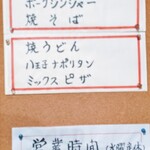 ポークジンジャー
焼そば
焼うどん
八王子ナポリタン
ミックスピザ
営業時間